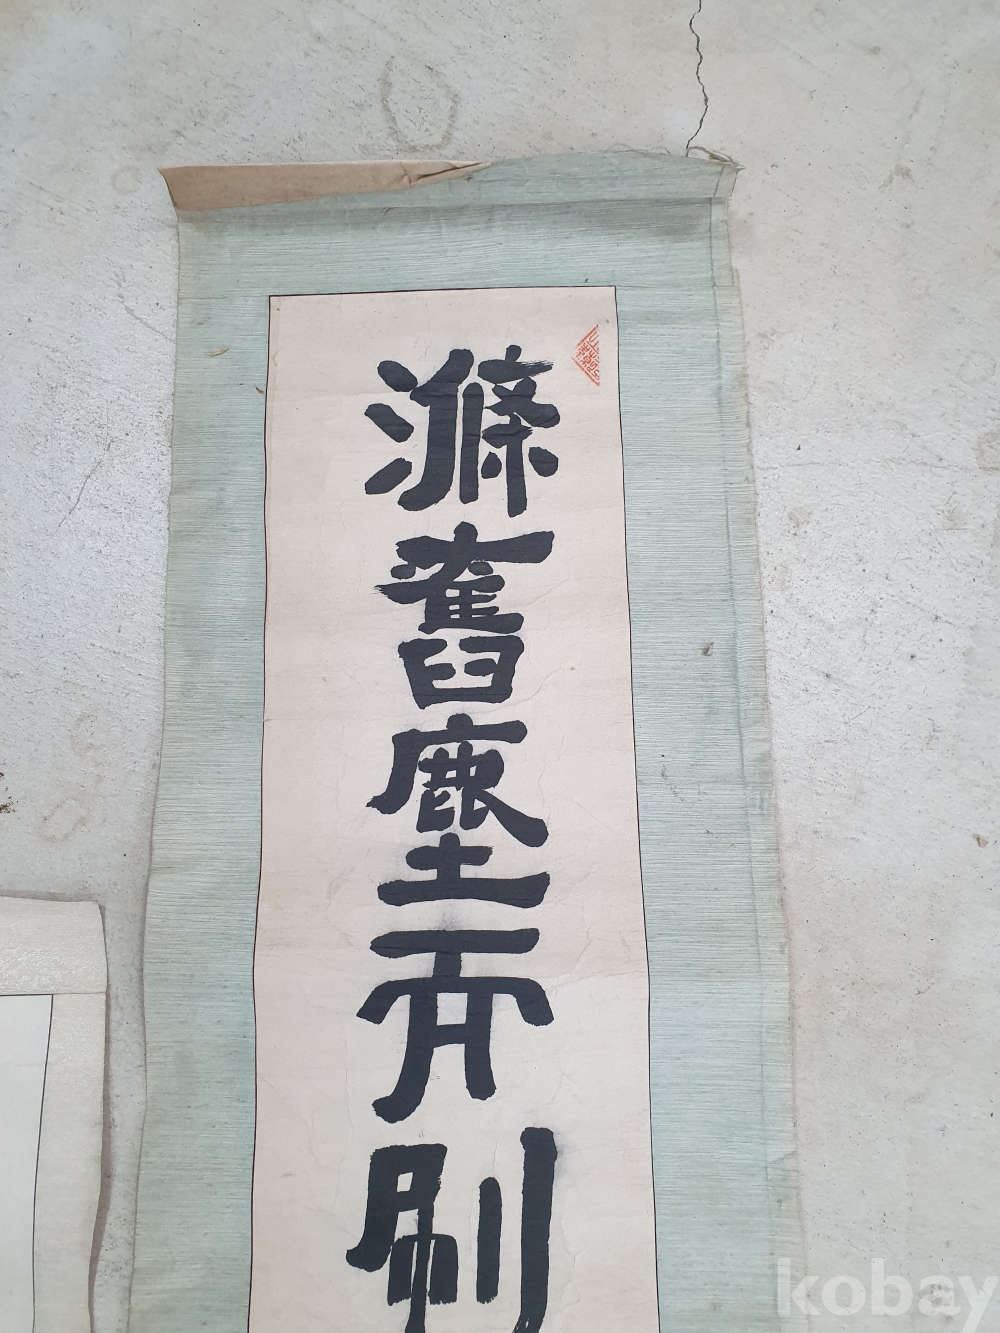 滌舊塵而刷
kobay